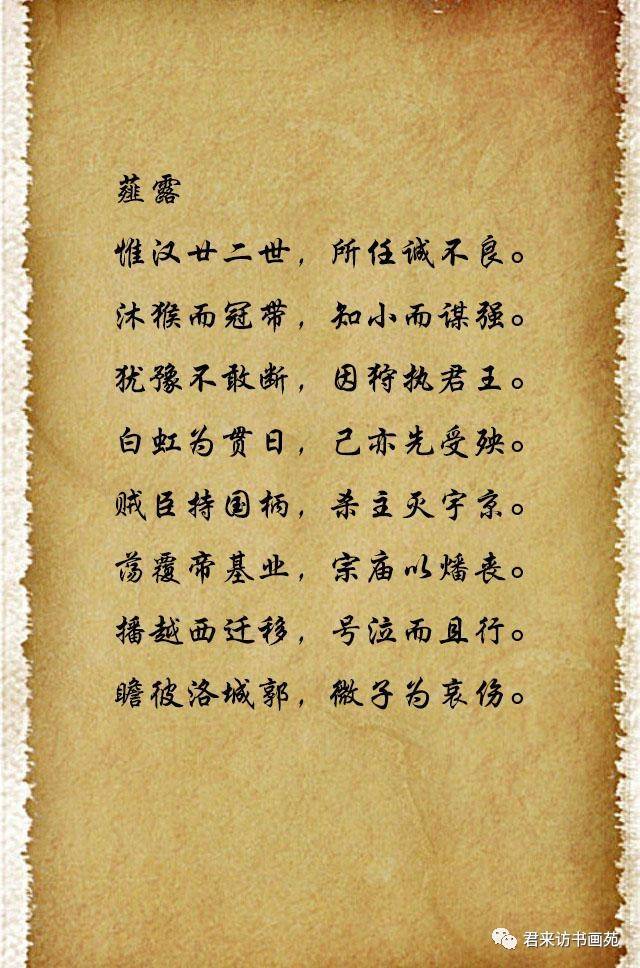 薤露
惟汉廿二世，所任诚不良。
沐猴而冠带，知小而谋强。
犹豫不敢断，因狩执君王。
白虹为贯日，己亦先受殃。
贼臣持国柄，杀主灭宇京。
荡覆帝基业，宗庙以燔丧。
播越西迁移，号泣而且行。
瞻彼洛城郭，微子为哀伤。
君来访书画苑